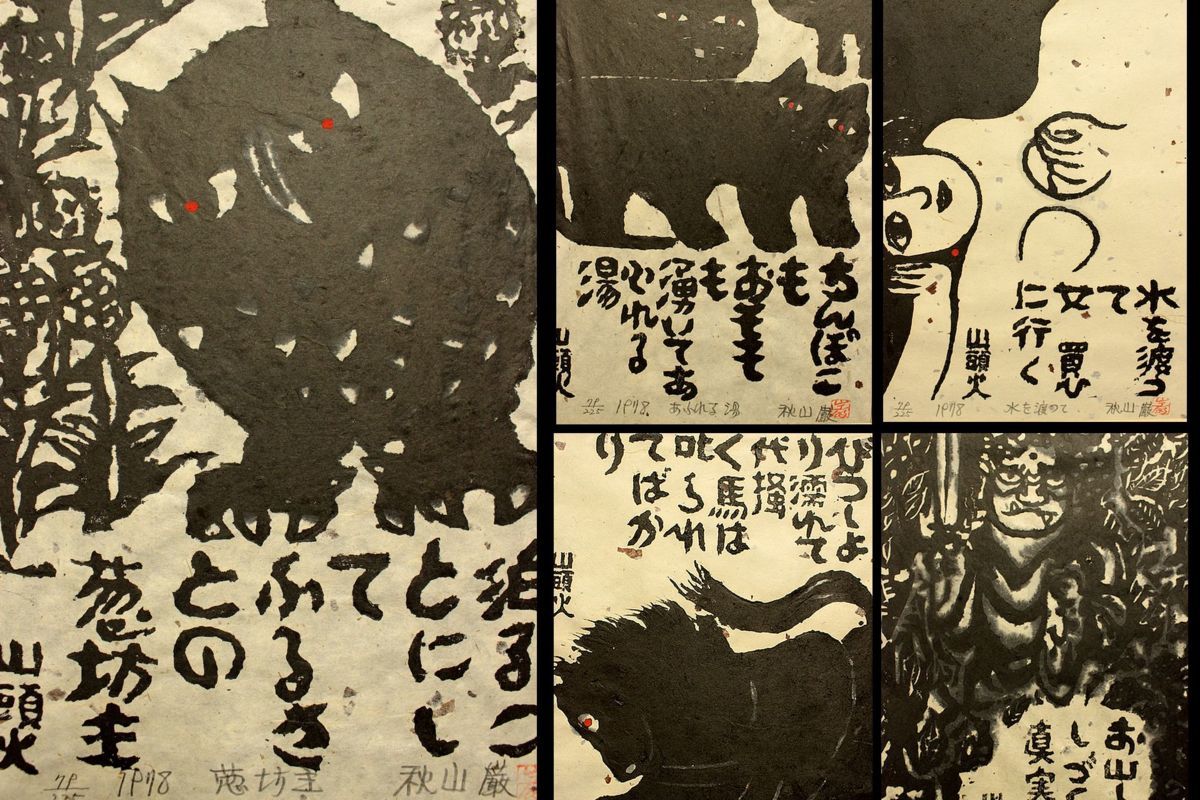 泊るこ
とにし
て
ふるさ
との
葱坊主
山頭火
79/225 1978 葱坊主 秋山巌
ちんぽこ
も
おそそ
も
湧いてあ
ふれる
湯
山頭火
79/225 1978. あふれる湯 秋山巌
水を渡つ
て
女買ひ
に行く
山頭火
79/225 1978 水を渡って 秋山巌
びつしよ
り濡れて
代掻
く馬は
叱られ
てばか
り
山頭火
お山し
しづく
真実